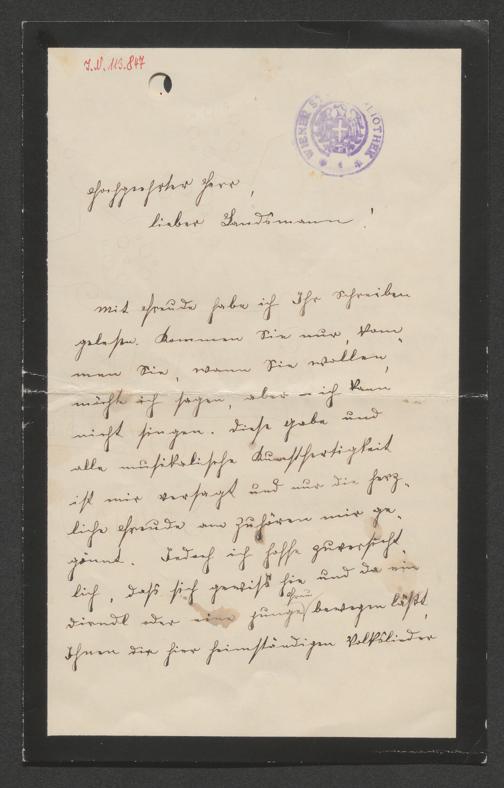 J.N. 113.847
WIENER ST LIOTHEK
Hochgeehrter Herr,
lieber Landsmann!
Mit Freude habe ich Ihr Schreiben
gelesen. Kommen Sie nur, kom-
men Sie, wann Sie wollen,
möcht ich sagen, aber – ich kann
nicht singen. Diese Gabe und
alle musikalische Kunstfertigkeit
ist mir versagt und nur die herz-
liche Freude am Zuhören mir ge-
gönnt. Jedoch ich hoffe zuversicht-
lich, dass sich gewiss hie und da ein
Dirndl oder eine junge Frau bewegen läßt,
Ihnen die hier heimständigen Volkslieder